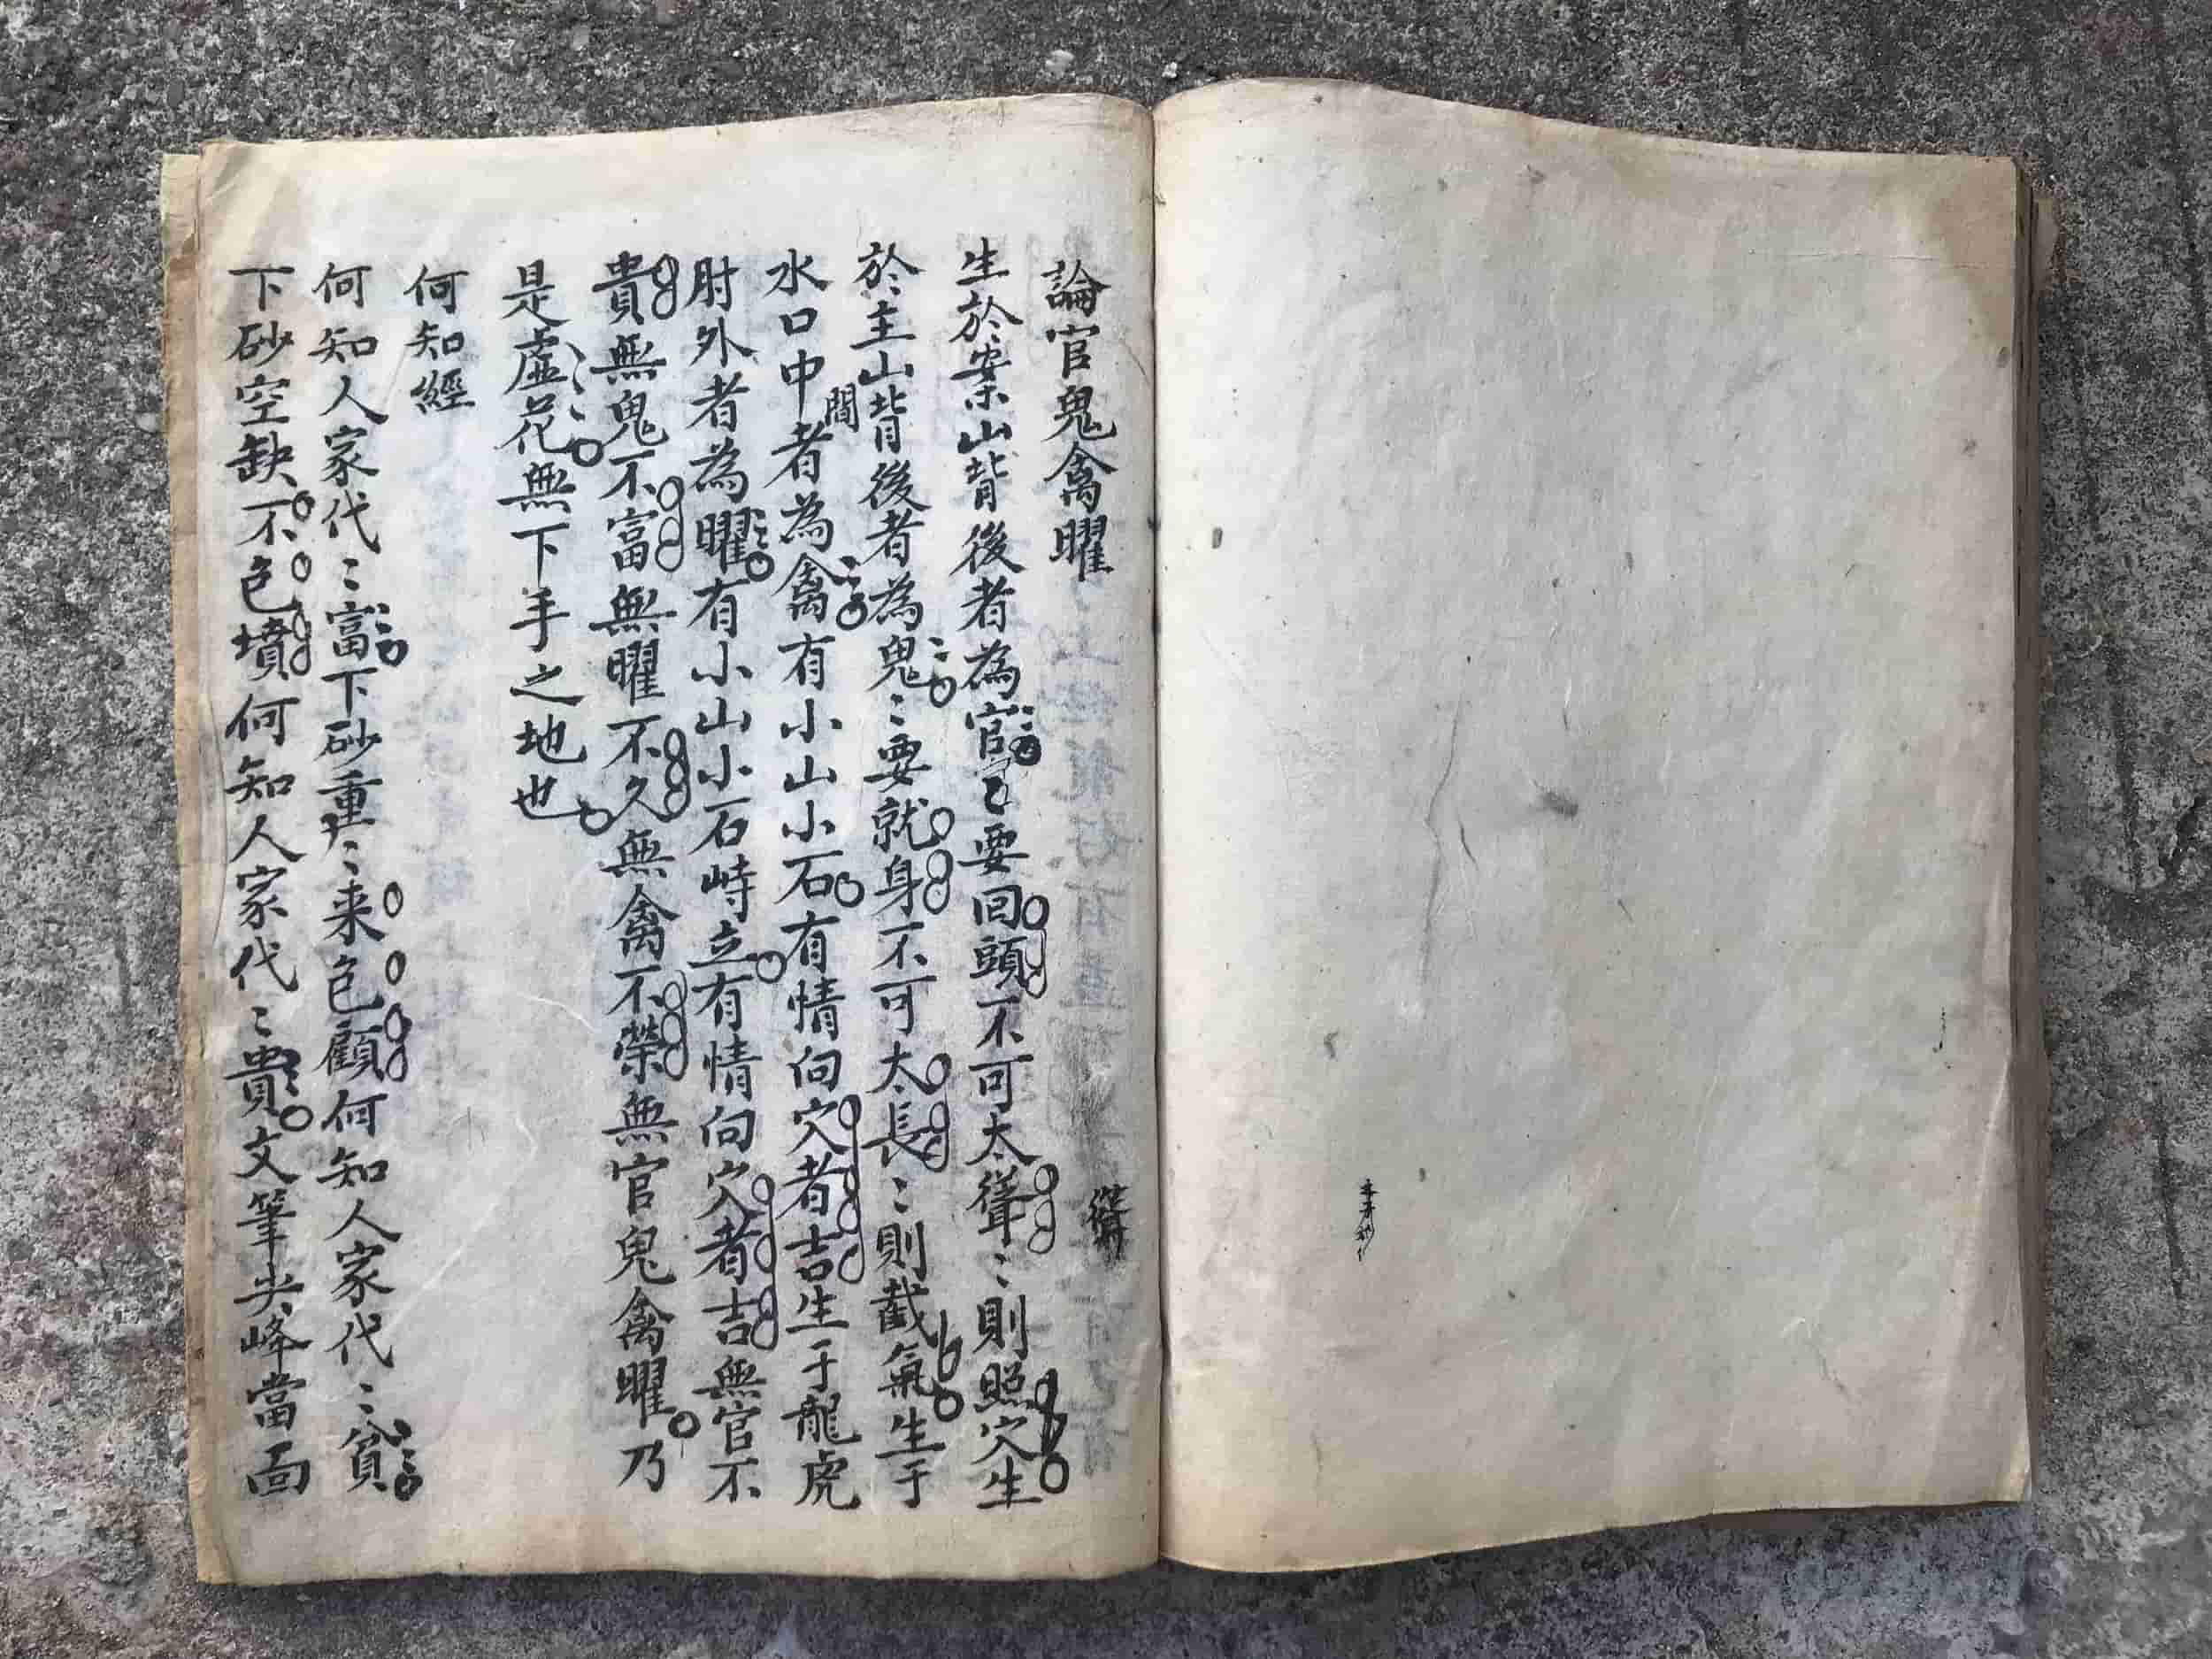 論官鬼禽曜
生於案山背後者為官〻要回頭不可太聳〻則照穴生
於主山背後者為鬼〻要就身不可太長〻則截氣生于
水口中間者為禽有小山小石有情向穴者吉生于龍虎
肘外者為曜有小山小石峙立有情向穴者吉無官不
貴無鬼不富無曜不久無禽不榮無官鬼禽曜乃
是虛花無下手之地也
何知經
何知人家代〻富下砂重〻来色顧何知人家代〻貧
下砂空缺不色墳何知人家代〻貴文筆尖峰當面